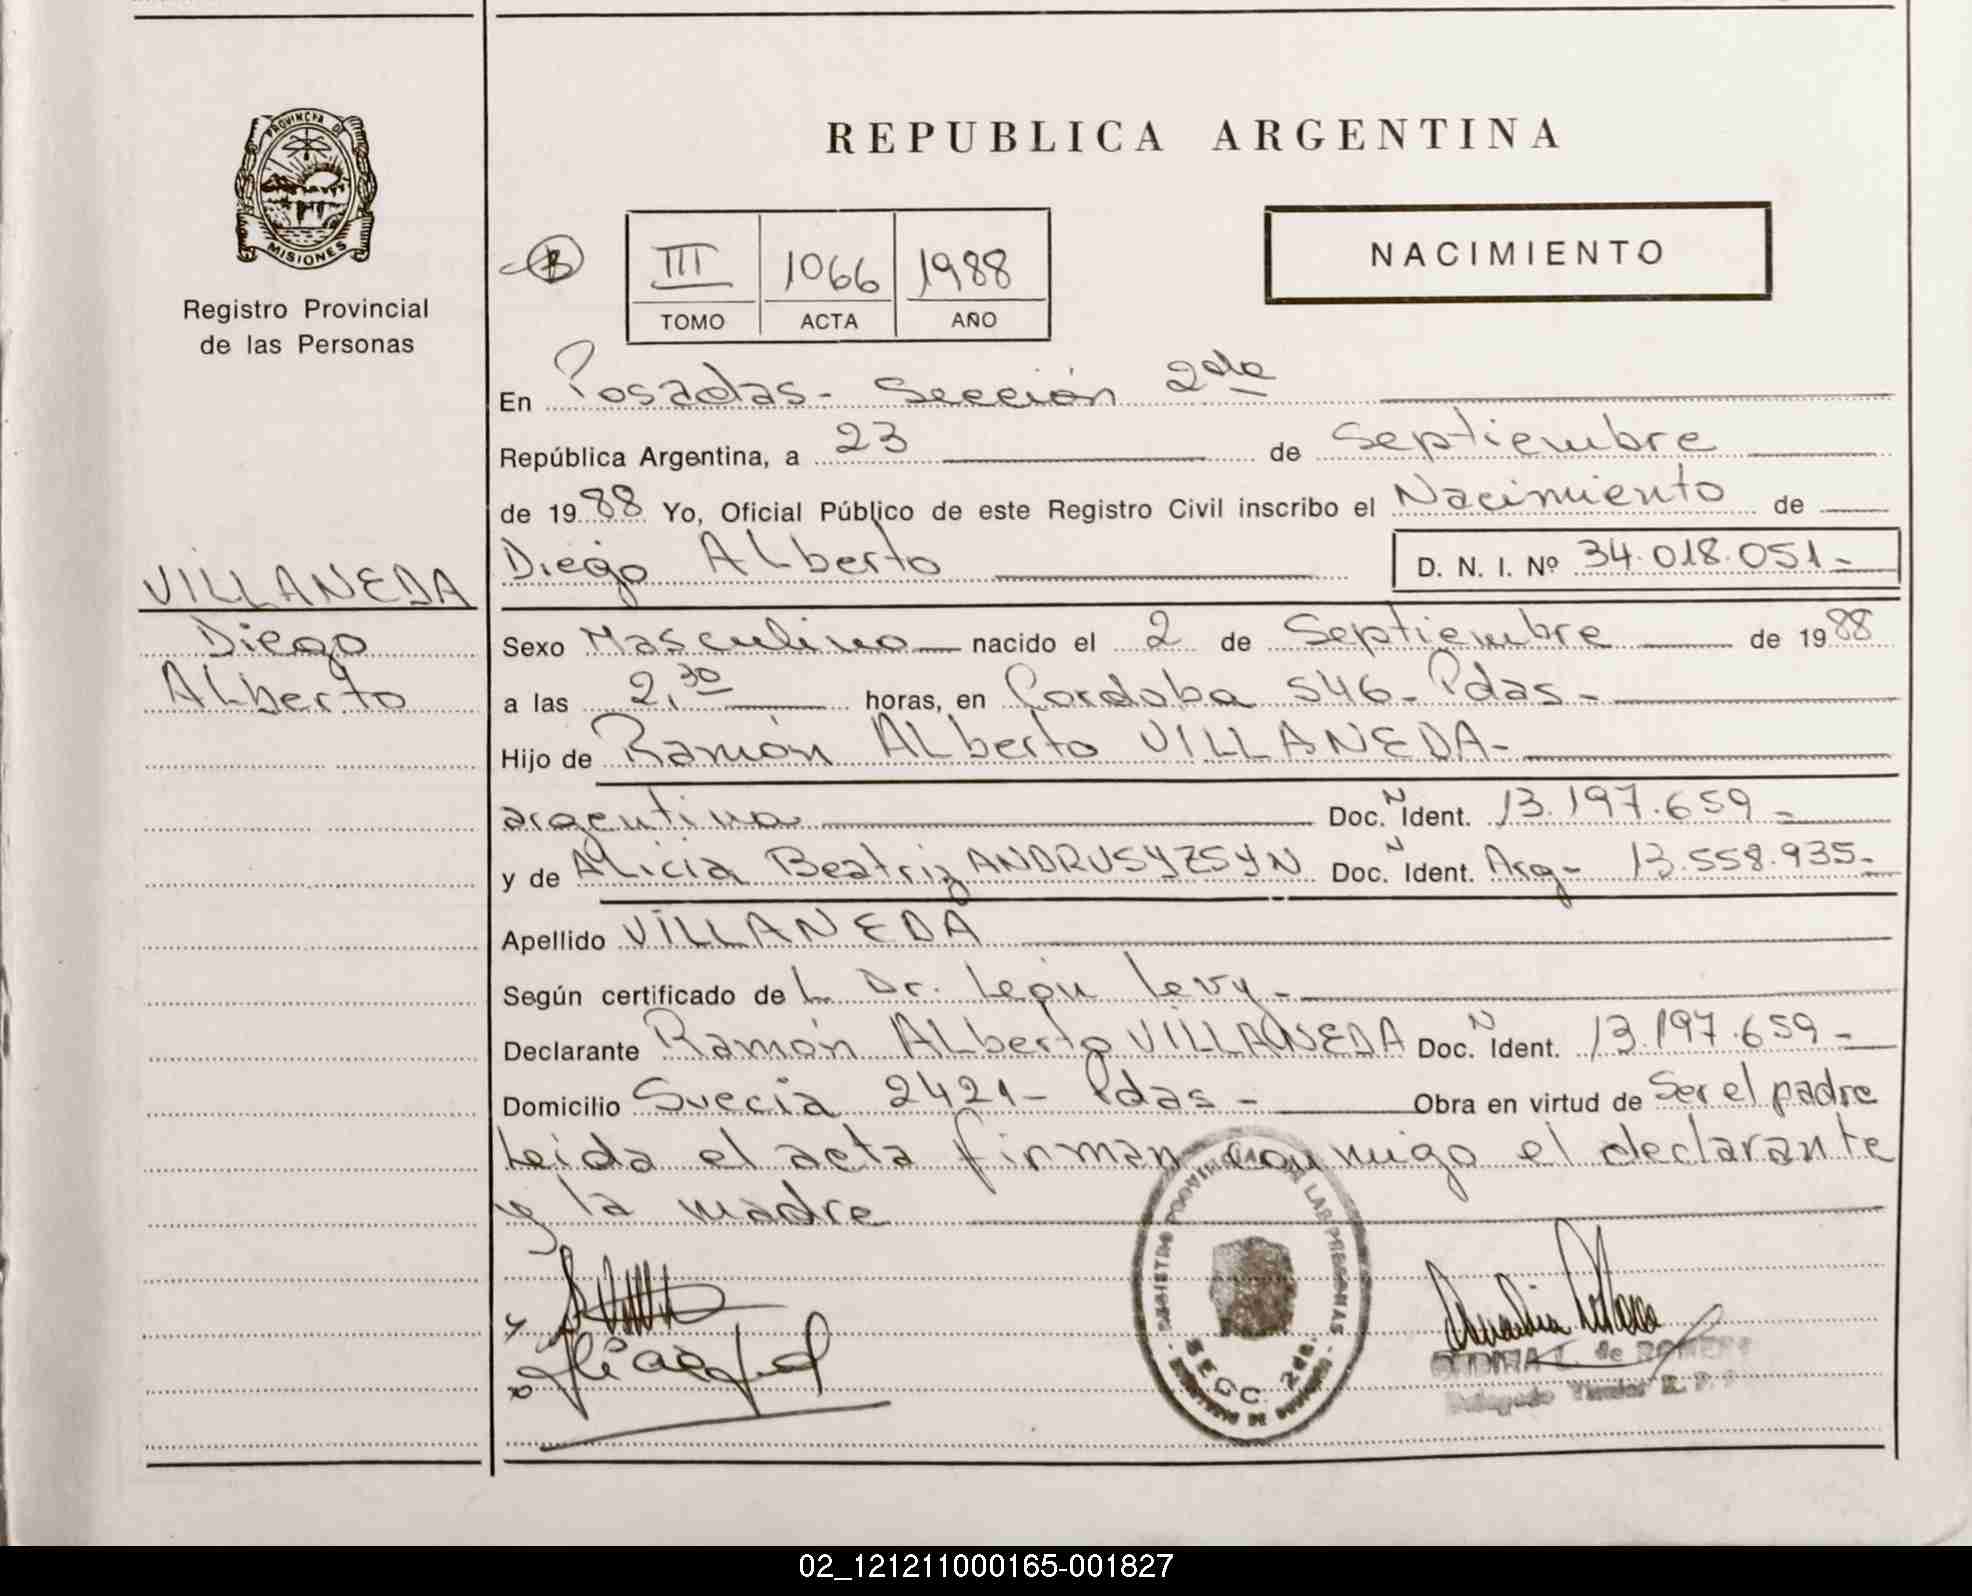 PROVINCIA DE
MISIONES
Registro Provincial
de las Personas
VILLANEDA
Diego
Alberto
REPUBLICA ARGENTINA
B
III 1066 1988
TOMO ACTA AÑO
NACIMIENTO
En Posadas - Sección 2da
República Argentina, a 23 de Septiembre
de 1988 Yo, Oficial Público de este Registro Civil inscribo el Nacimiento de
Diego Alberto D. N. I. Nº 34.018.051-
Sexo Masculino nacido el 2 de Septiembre de 1988
a las 2,30 horas, en Cordoba 546 - Pdas -
Hijo de Ramón Alberto VILLANEDA-
argentina Doc. N Ident. 13.197.659-
y de Alicia Beatriz ANDRUSYZSYN Doc. N Ident. Arg- 13.558.935-
Apellido VILLANEDA
Según certificado de L Dr. León Levy-
Declarante Ramón Alberto VILLANEDA Doc. N Ident. 13.197.659-
Domicilio Suecia 2421- Pdas - Obra en virtud de Ser el padre
Leida el acta firman conmigo el declarante
y la madre
REGISTRO PROVINCIAL DE LAS PERSONAS
SECC. 2da.
de
02_121211000165-001827